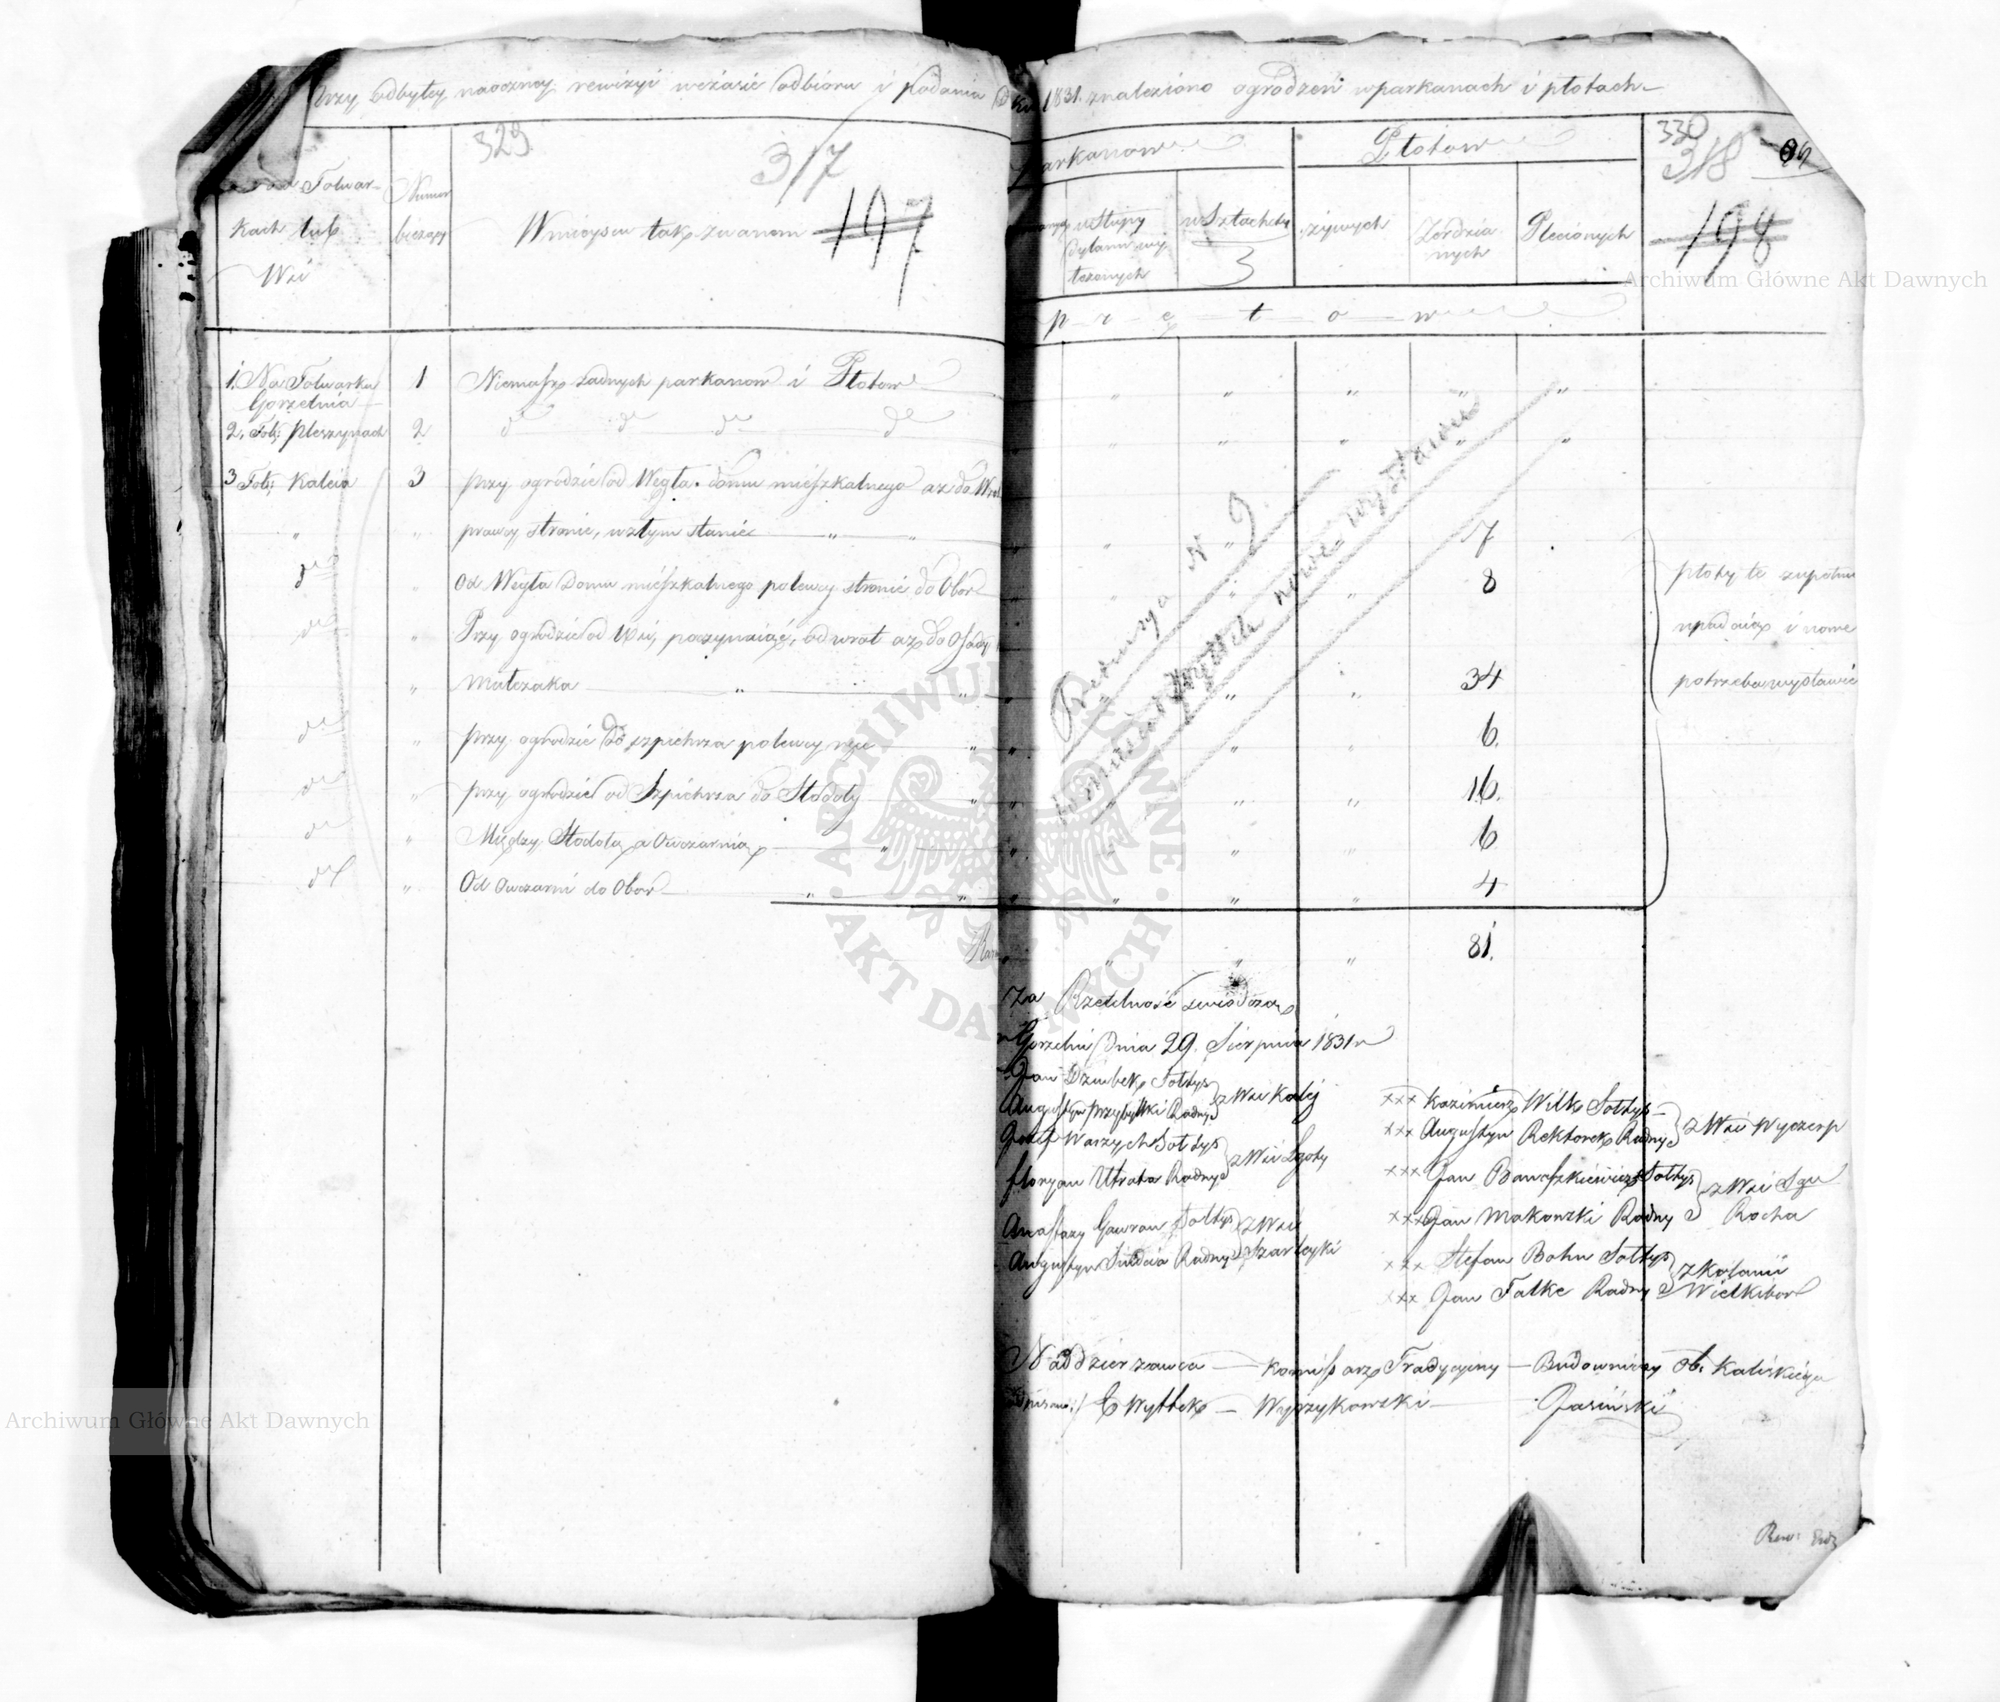 Przy odbytey naoczney rewizyi wczasie odbioru i podania Roku 1831. znaleziono ogrodzeń w parkanach i płotach
329
317
197
Folwarkach lub Wsi
Numer bieżący
W mieyscu tak zwanem
330
318
198
Parkanow
Płotow
w słupy dylami wy
tczonych
w Sztachety
3
żywych
Żerdzia
nych
Plecionych
p r ę t o w
1. Na Folwarku Gorzelnia 1 Niemasz żadnych parkanow i Płotow " " " " "
2. Fol: Pleszynach 2 do do do do " " " " "
3 Fol: Kaleia 3 przy ogrodzie od Węgła domu mieszkalnego aż do
" " prawey stronie, w złym stanie " " " " " 7
do " Od Węgła Domu mieszkalnego po lewey stronie do Obor " " " 8
do " Przy ogrodzie od Wsi, poczynaiąc, od wrot aż do Osady
" Matczaka " " " " " 34
do " przy ogrodzie do szpichrza po lewey ręce " " " " 6.
do " przy ogrodzie od Szpichrza do Stodoły " " " " " 16.
do " Między Stodołą a Owczarnią " " " " " 6
do " Od Owczarni do Obor " " " " " " 4
płoty te zupełnie
upadaią i nowe
potrzeba wystawić
nowe wystawić
" " " " 81.
Za Rzetelność świadczą
w Gorzelni Dnia 29. Sierpnia 1831 r
Jan Dziubek Sołtys
Augustyn Przybylski Radny
z Wsi Kaley
Jozef Warzych Sołtys
Floryan Utrata Radny
z Wsi Lgoty
Anastazy Gawron Sołtys
Augustyn Radny
z Wsi Szarleyki
xxx Kazimierz Wilk Sołtys
xxx Augustyn Rektorek Radny
z Wsi Wyczerp
xxx Jan Banaszkiewicz Sołtys
xxx Jan Makowski Radny
z Wsi Sgo Rocha
xxx Stefan Bohn Sołtys
xxx Jan Falke Radny
z Kolonii Wielkibor
Naddzierzawca — Kommissarz Tradycyiny — Budowniczy Ob. Kaliskiego
podpisano:/ E Wyttek — Wyrzykowski — Jasiński
Rew:
Archiwum Główne Akt Dawnych
Archiwum Główne Akt Dawnych
ARCHIWUM GŁÓWNE · AKT DAWNYCH ·